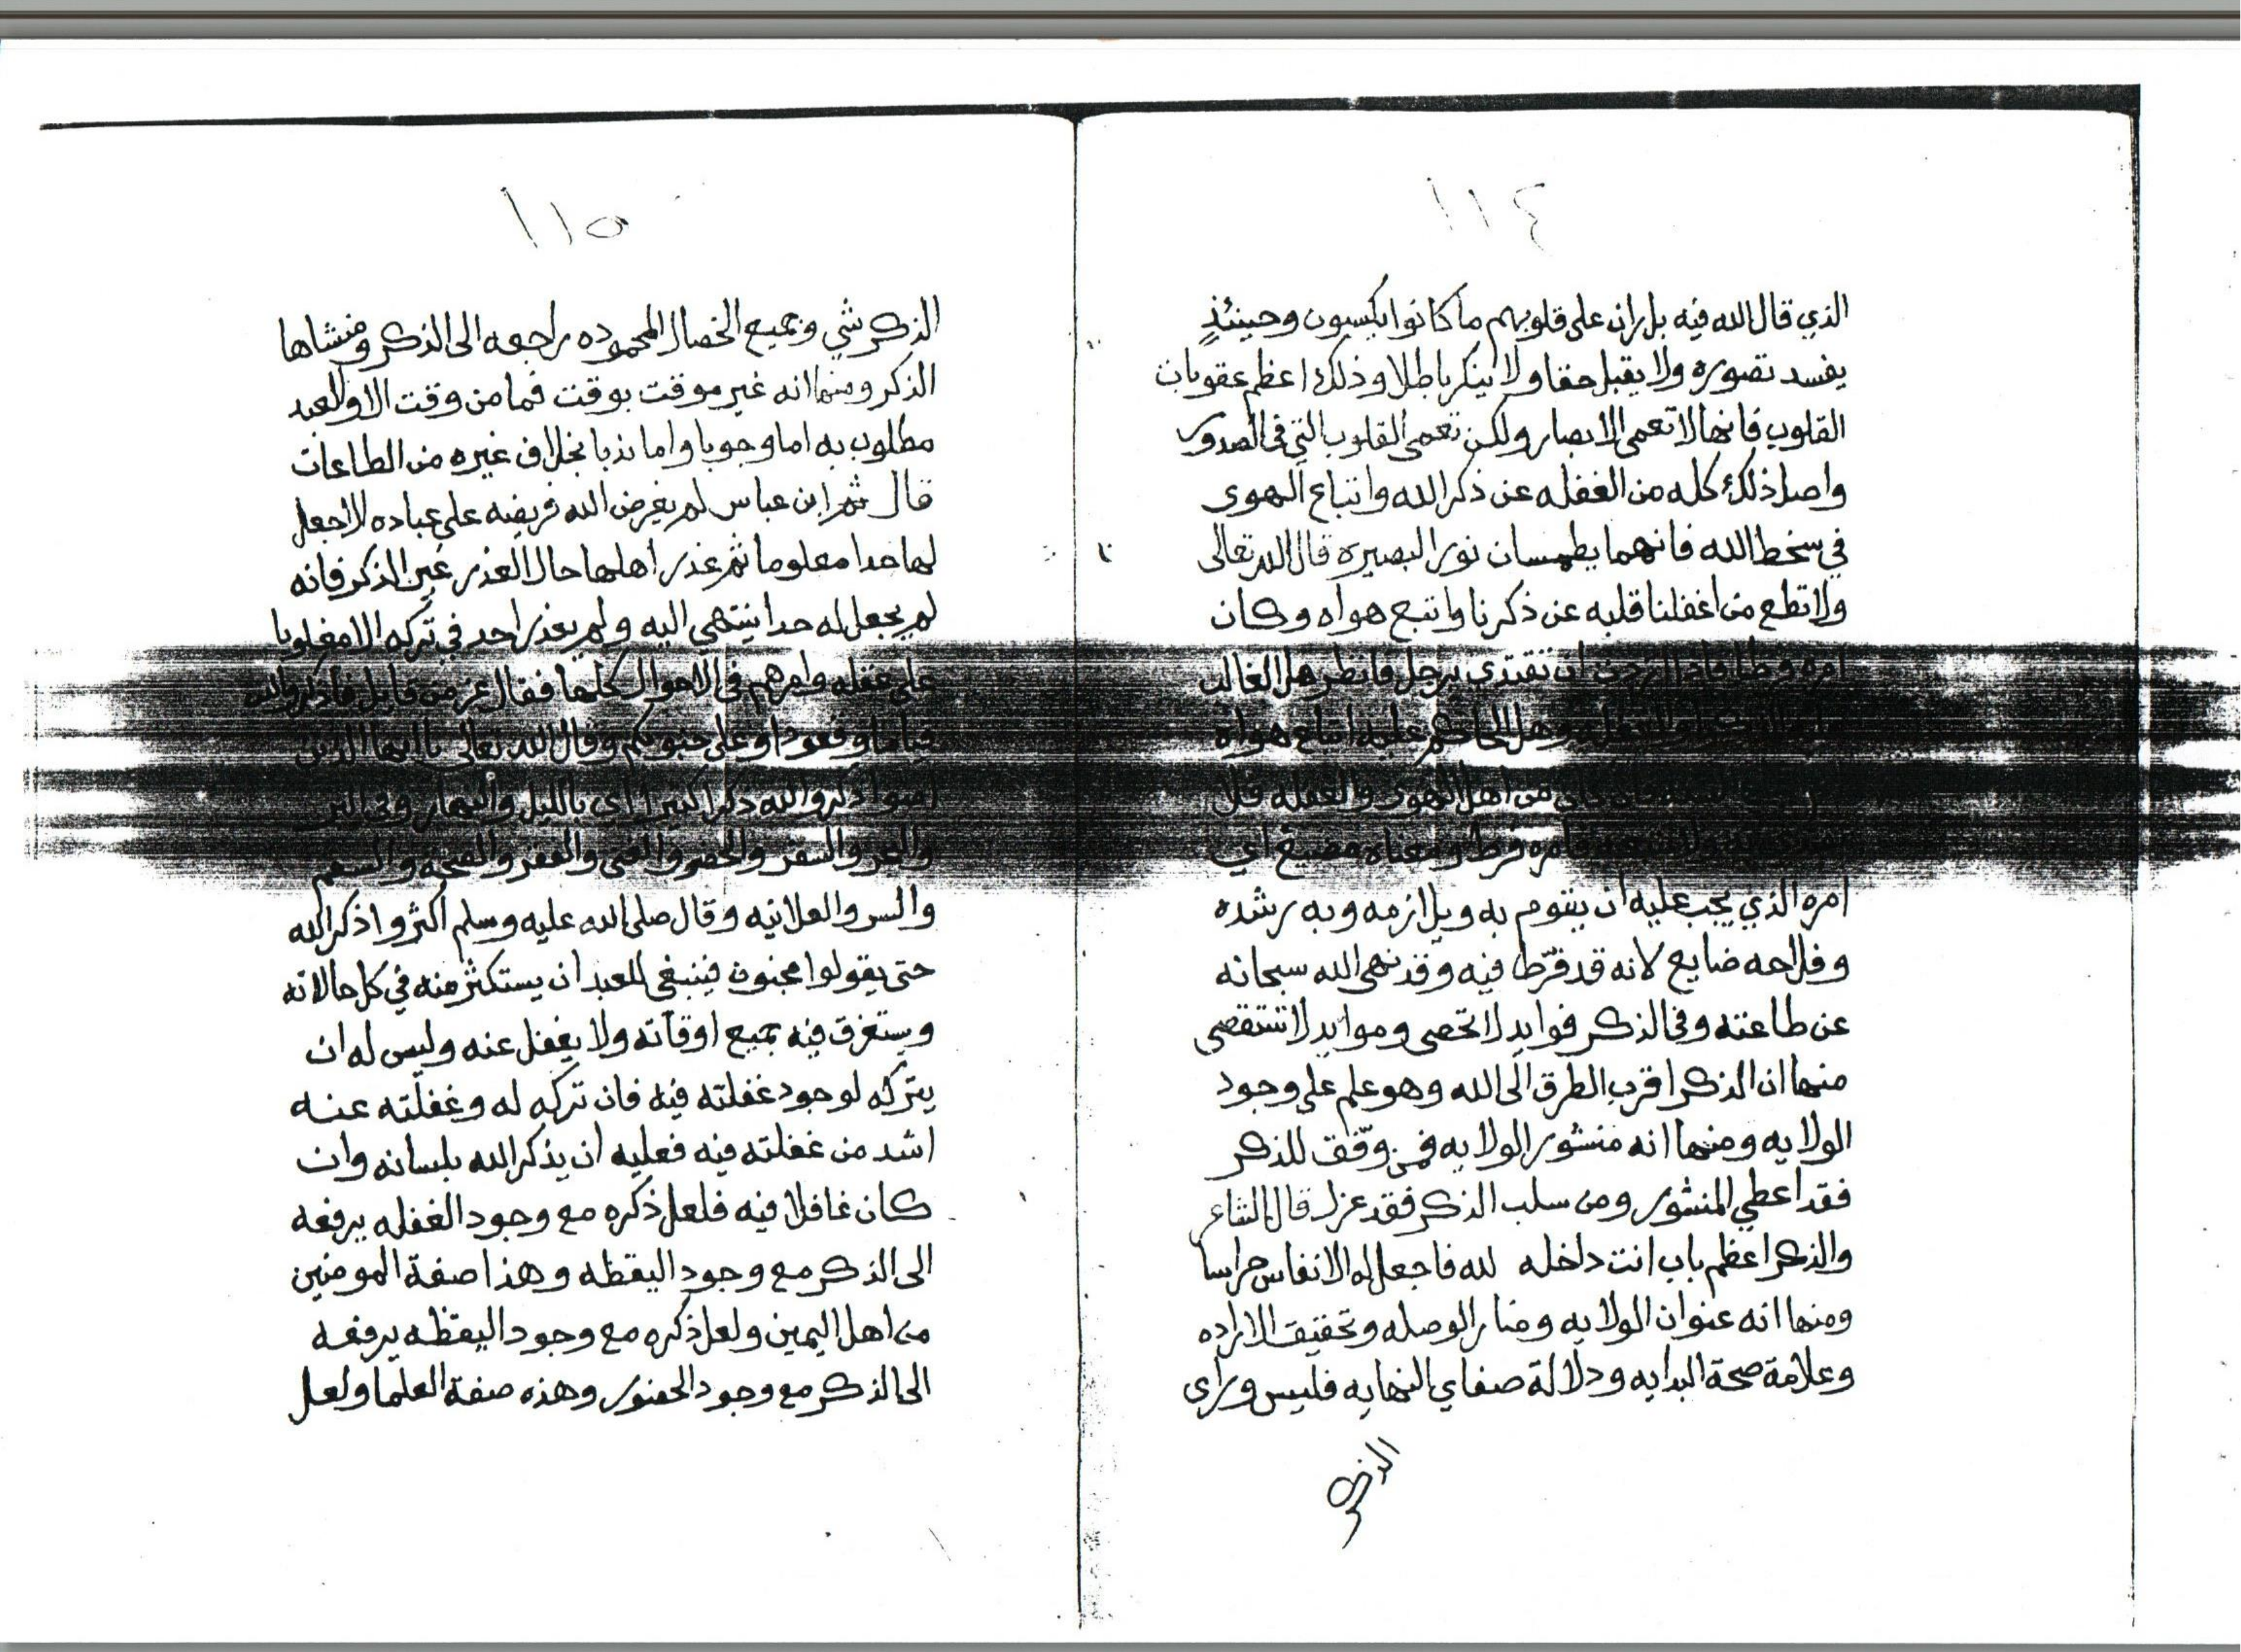 ١١٤
الذي قال الله فيه بل ران على قلوبهم ما كانوا يكسبون وحينئذٍ
يفسد تصوره ولا يقبل حقا ولا ينكر باطلا وذلك اعظم عقوبات
القلوب فانها لا تعمى الابصار ولكن تعمى القلوب التي في الصدور
واصل ذلك كله من الغفله عن ذكر الله واتباع الهوى
في سخط الله فانهما يطمسان نور البصيره قال الله تعالى
ولا تطع من اغفلنا قلبه عن ذكرنا واتبع هواه وكان
امره فرطا فاذا اردت ان تقتدي برجل فانظر هل الغالب
وهل الحاكم عليه اتباع هواه
من اهل الهوى والغفله فلا
فامره فرط ومعناه مضيع اي
امره الذي يجب عليه ان يقوم به ويلازمه وبه رشده
وفلاحه ضايع لانه قد فرّط فيه وقد نهى الله سبحانه
عن طاعته وفي الذكر فوايد لا تحصى وموايد لا تستقصى
منها ان الذكر اقرب الطرق الى الله وهو علم على وجود
الولايه ومنها انه منشور الولايه فمن وفّق للذكر
فقد اعطي المنشور ومن سلب الذكر فقد عزل قال الشاعر
والذكر اعظم باب انت داخله لله فاجعل له الانفاس حراسا
ومنها انه عنوان الولايه ومنار الوصله وتحقيق الاراده
وعلامة صحة البدايه ودلالة صفاي النهايه فليس وراى
الذكر
١١٥
الذكر شي وجميع الخصال المحموده راجعه الى الذكر ومنشاها
الذكر ومنها انه غير موقت بوقت فما من وقت الا والعبد
مطلوب به اما وجوبا واما ندبا بخلاف غيره من الطاعات
قال ثم ابن عباس لم يفرض الله فريضه على عباده الا جعل
لها حدا معلوما ثم عذر اهلها حال العذر غير الذكر فانه
لم يجعل له حدا ينتهي اليه ولم يعذر احد في تركه الا مغلوبا
على عقله وامرهم في الاحوال كلها فقال عز من قايل فاذكروا الله
قياما وقعودا وعلى جنوبكم وقال الله تعالى يا ايها الذين
امنوا اذكروا الله ذكرا كثيرا اي بالليل والنهار وفي البر
والبحر والسفر والحضر والغنى والفقر والصحة والسقم
والسر والعلانيه وقال صلى الله عليه وسلم اكثروا ذكر الله
حتى يقولوا مجنون فينبغي للعبد ان يستكثر منه في كل حالاته
ويستغرق فيه جميع اوقاته ولا يغفل عنه وليس له ان
يتركه لوجود غفلته فيه فان تركه له وغفلته عنه
اشد من غفلته فيه فعليه ان يذكر الله بلسانه وان
كان غافلا فيه فلعل ذكره مع وجود الغفله يرفعه
الى الذكر مع وجود اليقظه وهذا صفة المومنين
من اهل اليمين ولعل ذكره مع وجود اليقظه يرفعه
الى الذكر مع وجود الحضور وهذه صفة العلما ولعل